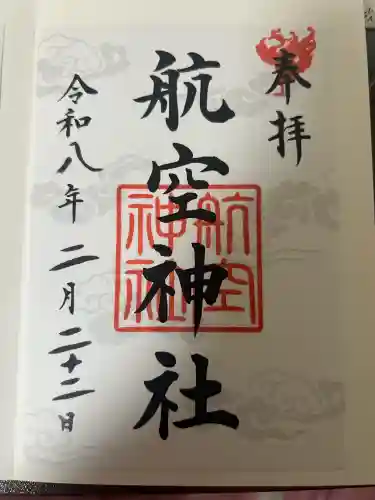 奉拝
航空神社
航空神社
令和八年 二月二十二日